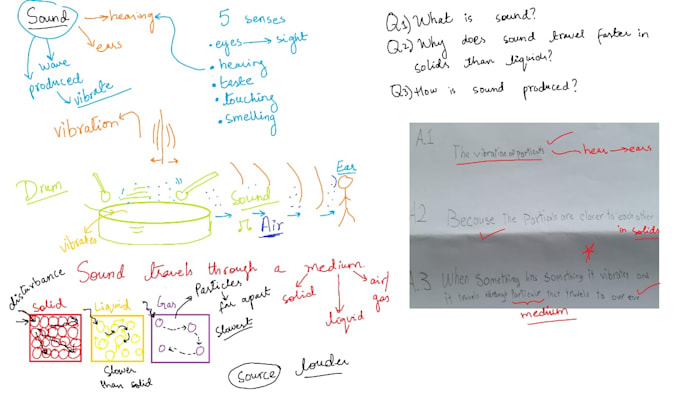 Sound
hearing
ears
wave
produced
vibrate
vibration
5 senses
• eyes → sight
• hearing
• taste
• touching
• smelling
Drum
Sound
Air
Ear
vibrates
Sound travels through a medium
solid
liquid
air/
gas
disturbance
Solid
Liquid
Gas
Particles
far apart
slowest
Slower
than solid
Source
louder
Q1) What is sound?
Q2) Why does sound travel faster in
solids than liquids?
Q3) How is sound produced?
A.1
The vibration of particals
hear → ears
A.2
Because the Particals are closer to each other
in solids
A.3 When Something has Something it vibrates and
it travels that travels to our ear
medium